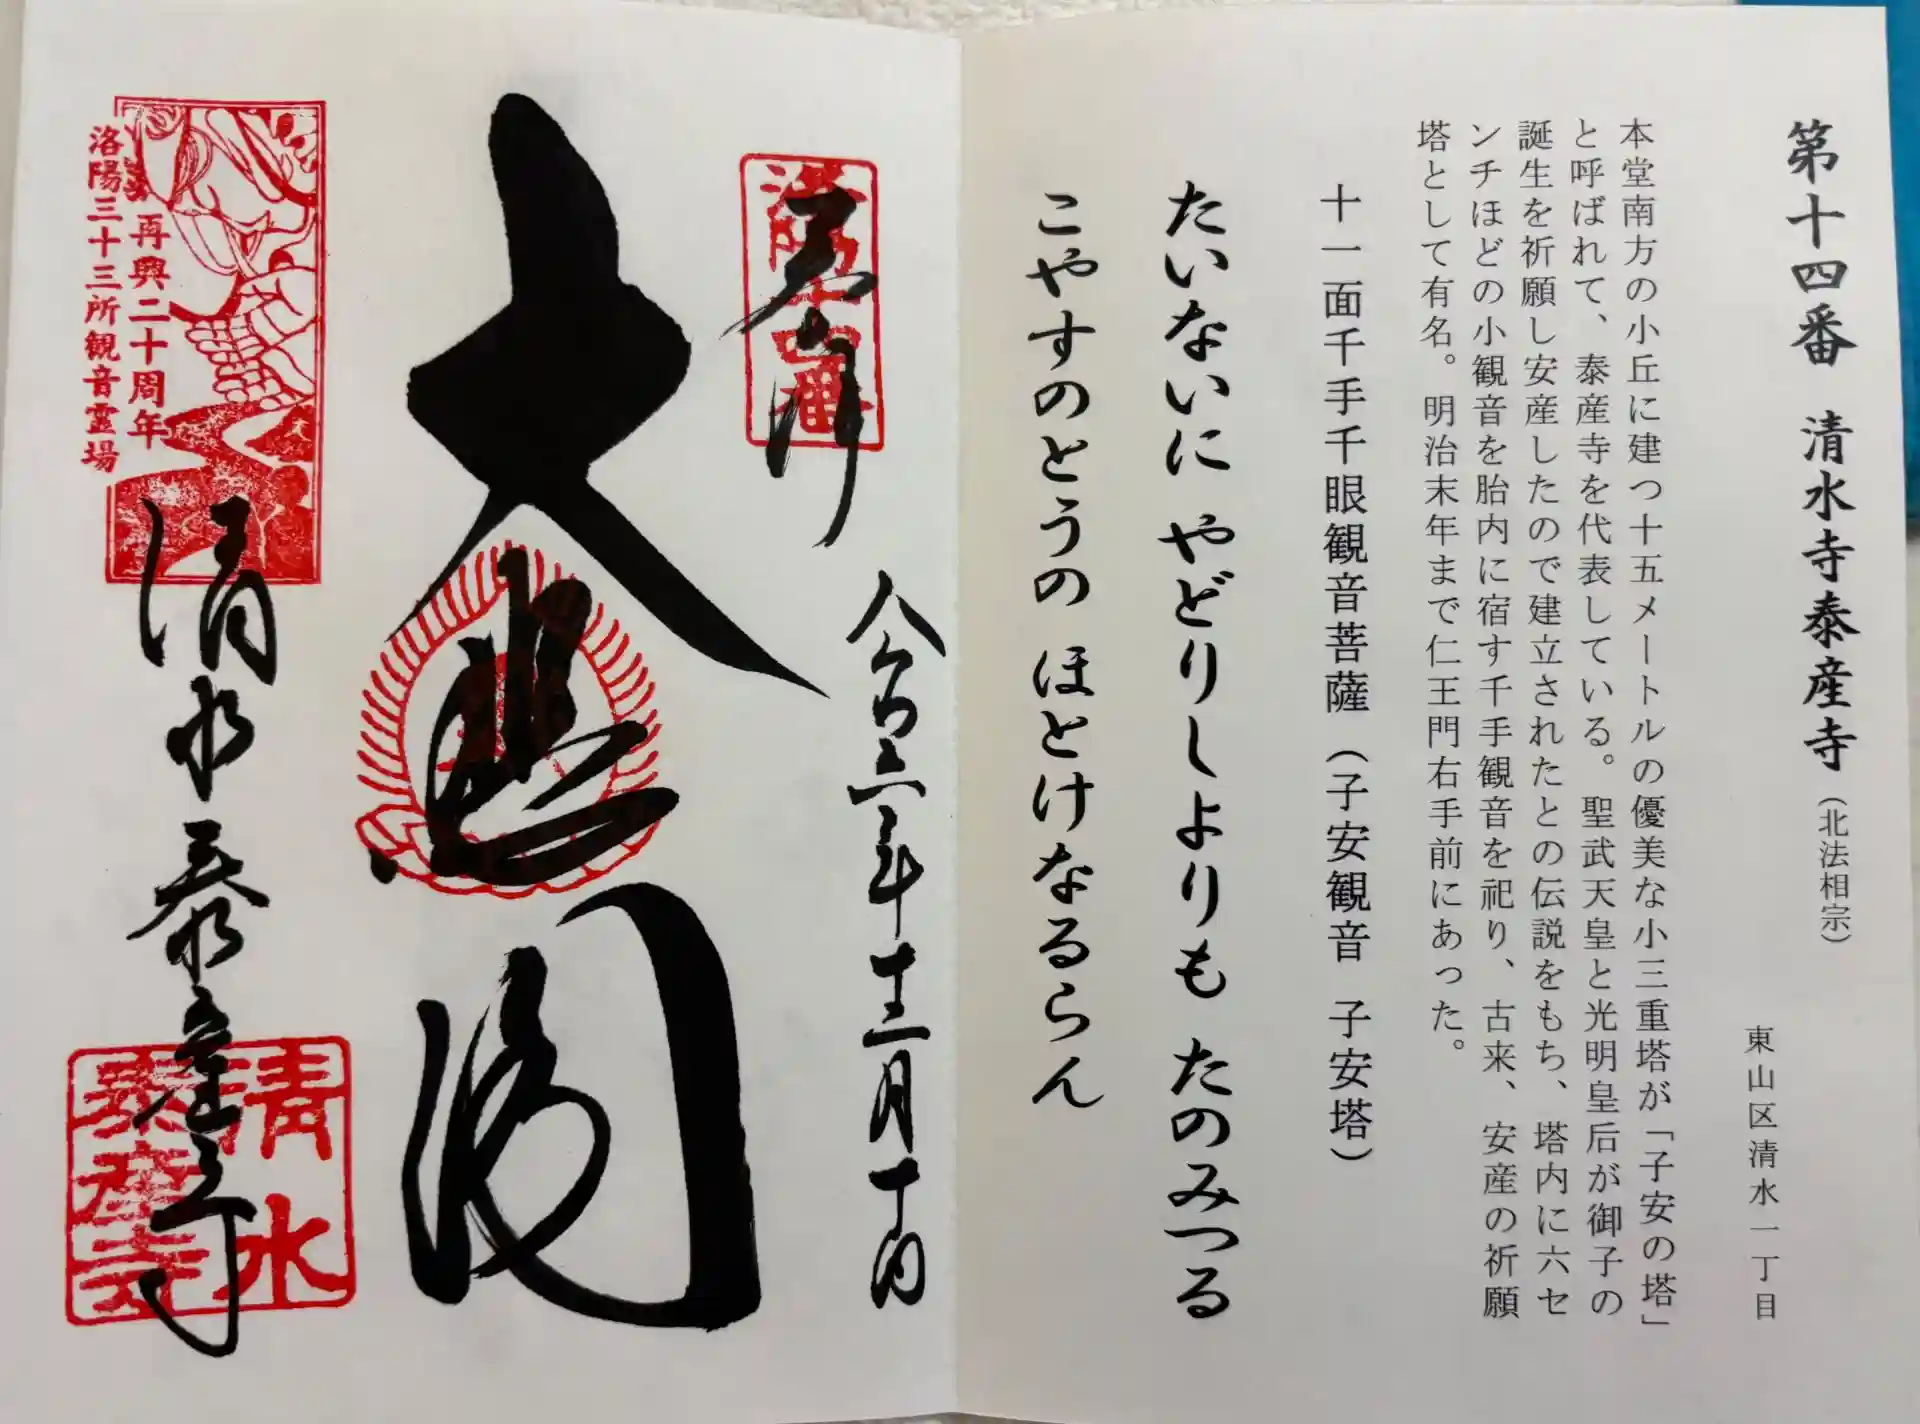 第十四番 清水寺泰産寺(北法相宗)
東山区清水一丁目
本堂南方の小丘に建つ十五メートルの優美な小三重塔が「子安の塔」
と呼ばれて、泰産寺を代表している。聖武天皇と光明皇后が御子の
誕生を祈願し安産したので建立されたとの伝説をもち、塔内に六セ
ンチほどの小観音を胎内に宿す千手観音を祀り、古来、安産の祈願
塔として有名。明治末年まで仁王門右手前にあった。
十一面千手千眼観音菩薩(子安観音 子安塔)
たいないに やどりしよりも たのみつる
こやすのとうの ほとけなるらん
奉拝
洛陽十四番
令和六年十二月十日
大悲閣
再興二十周年
洛陽三十三所観音霊場
清水泰産寺
清水
泰産寺